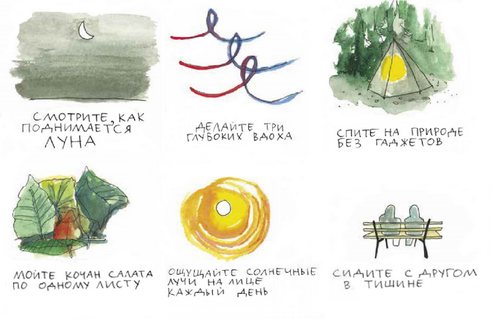 СМОТРИТЕ, КАК
ПОДНИМАЕТСЯ
ЛУНА
ДЕЛАЙТЕ ТРИ
ГЛУБОКИХ ВДОХА
СПИТЕ НА ПРИРОДЕ
БЕЗ ГАДЖЕТОВ
МОЙТЕ КОЧАН САЛАТА
ПО ОДНОМУ ЛИСТУ
ОЩУЩАЙТЕ СОЛНЕЧНЫЕ
ЛУЧИ НА ЛИЦЕ
КАЖДЫЙ ДЕНЬ
СИДИТЕ С ДРУГОМ
В ТИШИНЕ